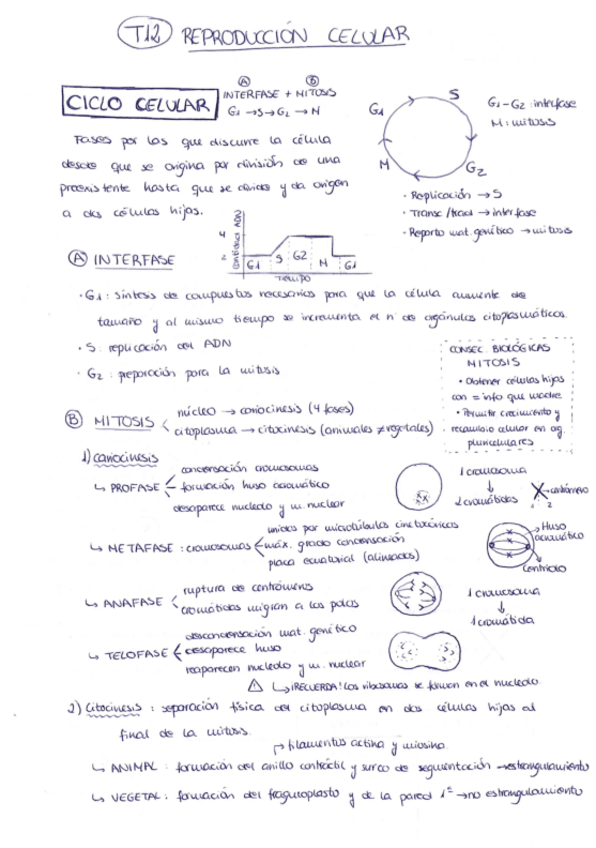 T12 REPRODUCCIÓN CELULAR
CICLO CELULAR
A B
INTERFASE + MITOSIS
G1 → S → G2 → M
G1 S G2 M
G1-G2: interfase
M: mitosis
Fases por las que discurre la célula
desde que se origina por división de una
preexistente hasta que se divide y da origen
a dos células hijas.
· Replicación → S
· Transc/trad → interfase
· Reparto mat. genético → mitosis
cantidad ADN
4
2
G1 S G2 M G1
Tiempo
A INTERFASE
· G1: síntesis de compuestos necesarios para que la célula aumente de
tamaño y al mismo tiempo se incrementa el nº de orgánulos citoplasmáticos.
· S: replicación del ADN
· G2: preparación para la mitosis
CONSEC. BIOLÓGICAS
MITOSIS
• Obtener células hijas
con = info que madre
• Permitir crecimiento y
recambio celular en og.
pluricelulares
B MITOSIS
núcleo → cariocinesis (4 fases)
citoplasma → citocinesis (animales ≠ vegetales)
1) Cariocinesis
↳ PROFASE
condensación cromosomas
formación huso acromático
desaparece nucleolo y m. nuclear
1 cromosoma
↓
2 cromátidas
centrómero
1 2
↳ METAFASE: cromosomas
unidos por microtúbulos cinetocóricos
máx. grado condensación
placa ecuatorial (alineados)
Huso
acromático
Centriolo
↳ ANAFASE
ruptura de centrómeros
cromátidas migran a los polos
1 cromosoma
↓
1 cromátida
↳ TELOFASE
descondensación mat. genético
desaparece huso
reaparecen nucleolo y m. nuclear
⚠ ↳ ¡RECUERDA! Los ribosomas se forman en el nucleolo.
2) Citocinesis: separación física del citoplasma en dos células hijas al
final de la mitosis.
↱ filamentos actina y miosina
↳ ANIMAL: formación del anillo contráctil y surco de segmentación → estrangulamiento
↳ VEGETAL: formación del fragmoplasto y de la pared 1ª → no estrangulamiento